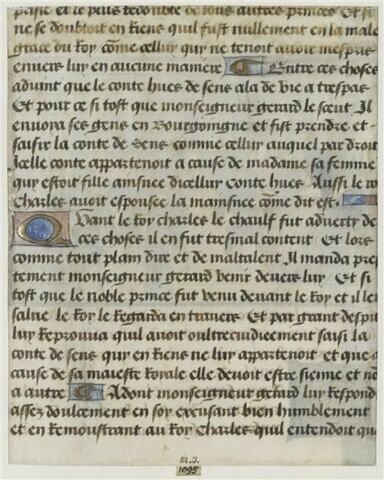 plaise et le plus redoubte de tous autres princes Et si
ne se doubtoit en riens quil fust nullement en la male
grace du Roy cõme celluy quy ne tenoit avoir mespris
envers luy en aucune maniere Entre ces choses
advint que le conte hues de sens ala de vie a trespas
Et pour ce si tost que monseigneur gerard le sceut Il
envoia ses gens en Bourgoingne et fist prendre et
saisir la conte de Sens comme celluy auquel par droit
Icelle conte appartenoit a cause de madame sa femme
quy estoit fille aisnee dicelluy conte hues Aussi le roy
charles avoit espousee la mainsnee cõme dit est
Quant le Roy charles le chaulf fut adverty de
ces choses il en fut tresmal content Et lors
comme tout plain dire et de maltalent Il manda pres
tement monseigneur gerard venir devers luy Et si
tost que le noble prince fut venu devant le Roy et il leut
salue le Roy le Regarda en travers Et par grant despit
luy Reprouva quil avoit oultrecuidieement saisi la
conte de sens quy en Riens ne luy appartenoit et que a
cause de sa maieste Roiale elle devoit estre sienne et no
a autre Adont monseigneur gerard luy Respond
assez doulcement en soy excusant bien humblement
et en Remoustrant au Roy Charles quil entendoit que
M.I.
1095